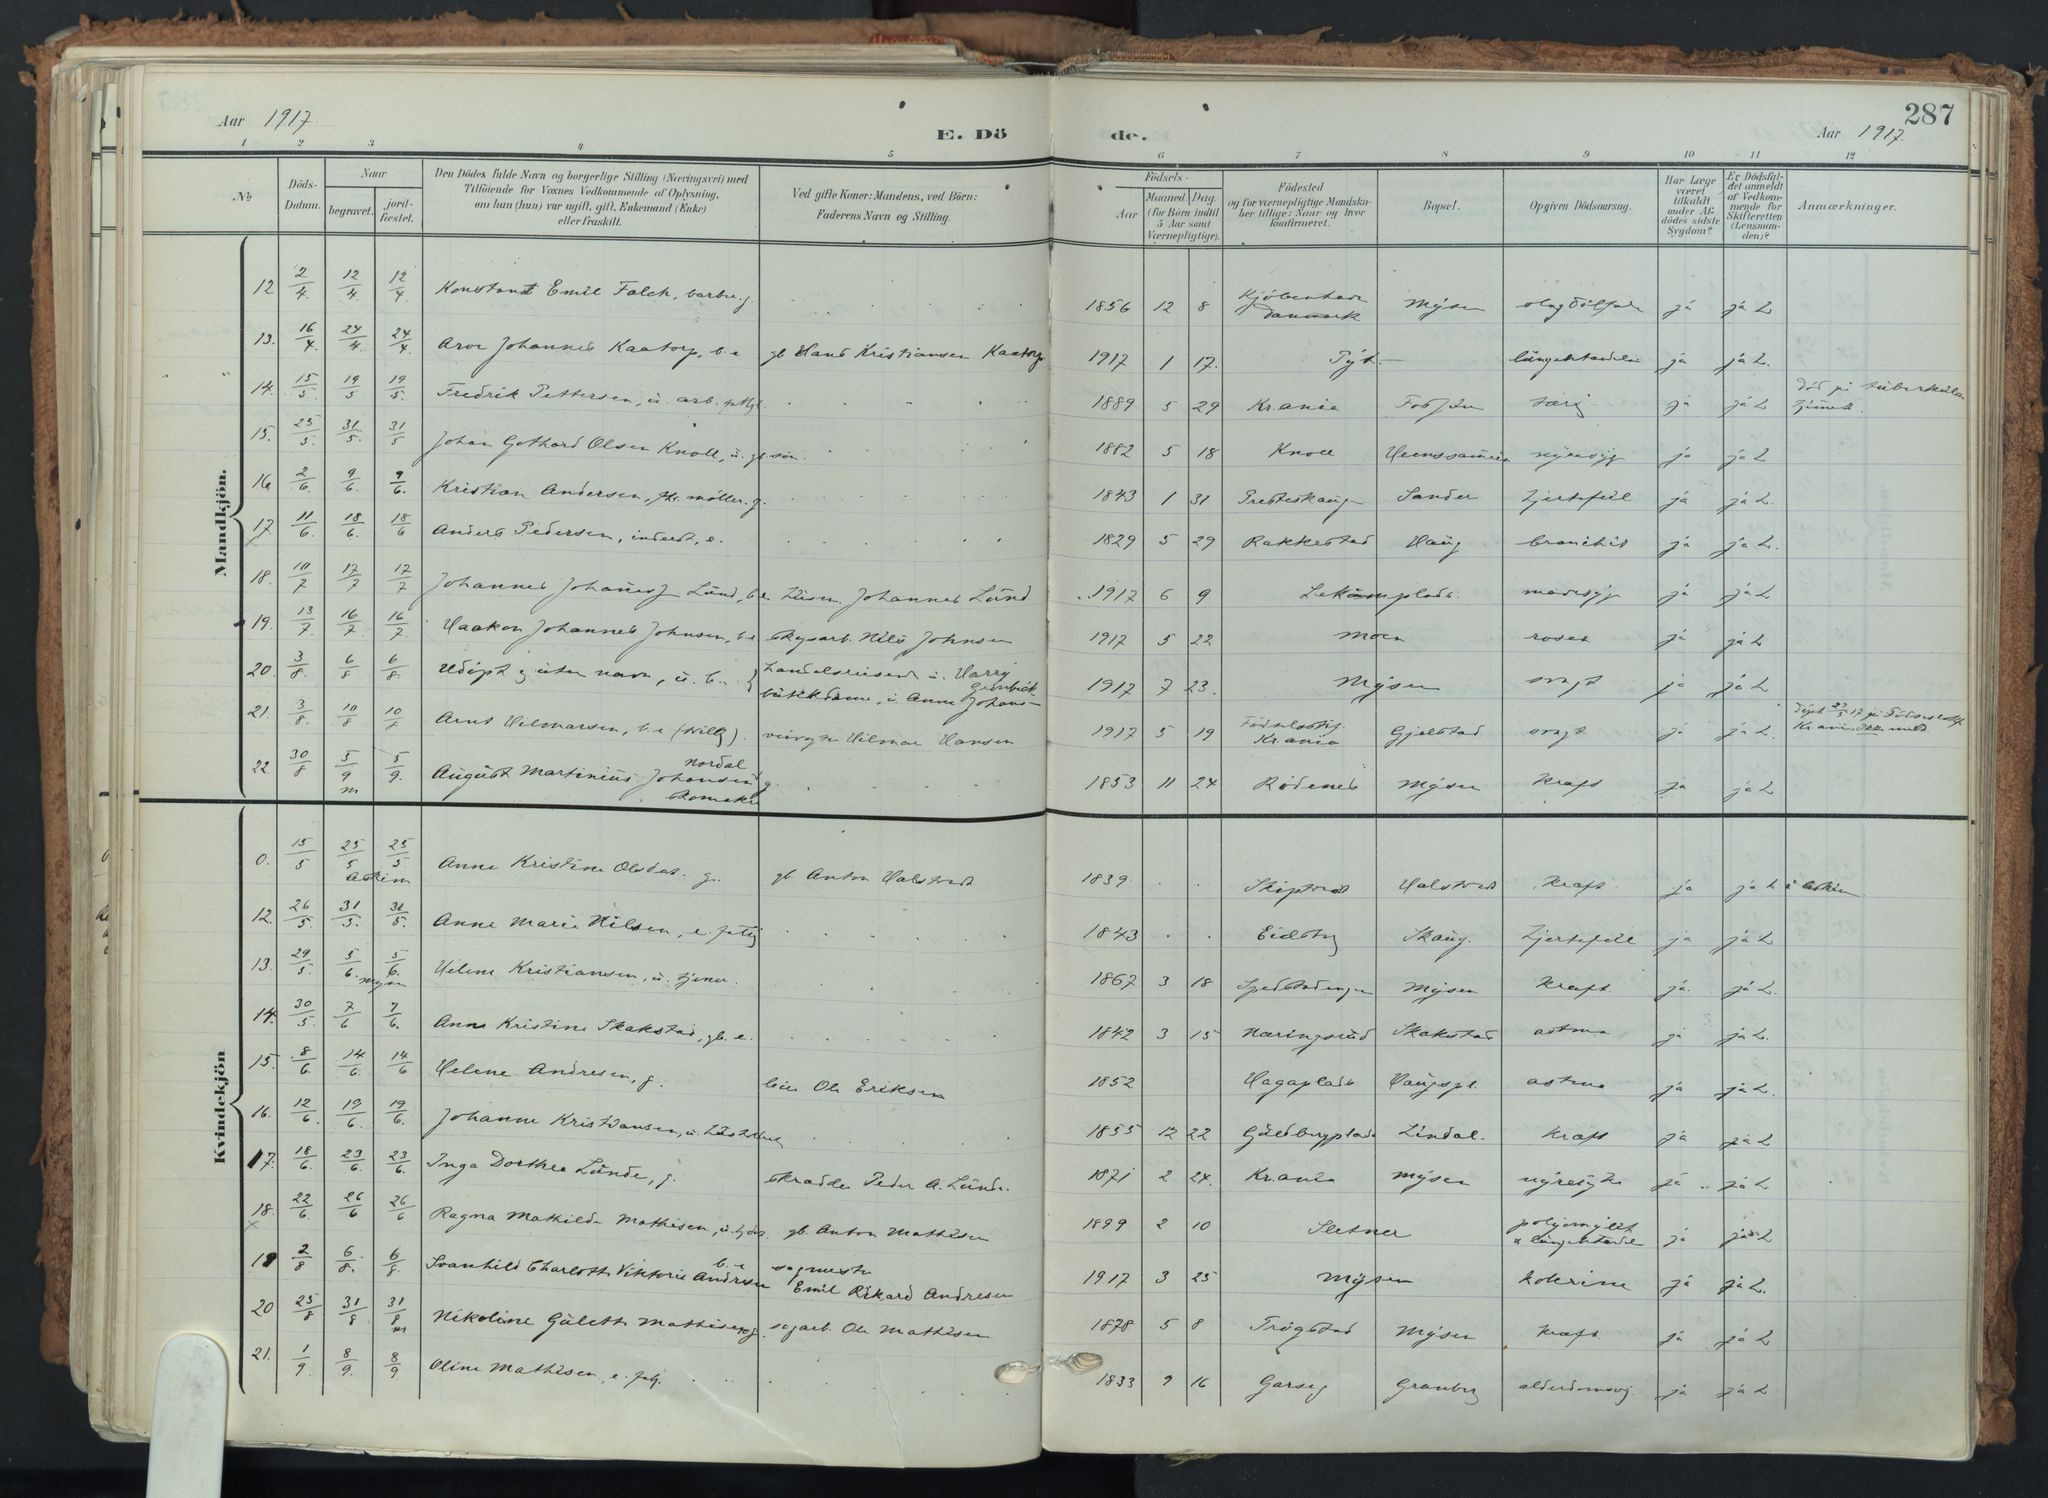 Aar 1917.
E. Dö
de.
Aar 1917.
287
1 2 3 4 5 6 7 8 9 10 11 12
№
Döds-Datum.
Naar
begravet.
jord-fæstet.
Den Dödes fulde Navn og borgerlige Stilling (Næringsvei) med
Tilföiende for Voxnes Vedkommende af Oplysning,
om han (hun) var ugift, gift, Enkemand (Enke)
eller fraskilt.
Ved gifte Koner: Mandens, ved Börn:
Faderens Navn og Stilling.
Födsels-
Aar
Maaned. Dag.
(for Börn indtil
5 Aar samt
Værnepligtige).
Födested
og for værnepligtige Mandska-
ber tillige: Naar og hvor
konfirmeret.
Bopæl.
Opgiven Dödsaarsag.
Har Læge
været
tilkaldt
under Af-
dödes sidste
Sygdom?
Er Dödsfal-
det anmeldt
af Vedkom-
mende for
Skifteretten
(Lensman-
den)?
Anmærkninger.
Mandkjön.
12 2/4. 12/4. 12/4. Konstant Emil Falch, barber. g. 1856 12 8 Danmark Mysen ja ja L
13. 16/4. 24/4. 24/4. Johannes Kaatorp, b. e gb Hans Kristiansen Kaatorp 1917 1 17. ja ja L.
14. 15/5. 19/5 19/5. Fredrik Pettersen, u. arb. 1889 5 29 Kr.ania tæring ja ja L Död på
15. 25/5. 31/5. 31/5 Johan Gothard Olsen Knoll, u. gb søn. 1882 5 18 Knoll nyresyg ja ja L
16 2/6. 9/6. 9/6. Kristian Andersen, møller. g. 1843 1 31 Sander hjertefeil ja ja L.
17. 11/6. 18/6. 18/6 Anders Pedersen, inderst, e. 1829 5 29 Rakkestad Haug ja ja L.
18. 10/7 17/7 17/7 Johannes Lund, b. e Johannes Lund 1917 6 9 mavesyg ja ja L
19. 13/7 16/7. 16/7. Haakon Johannes Johnsen, b. e Nils Johnsen 1917 5 22 Moen ja ja L
20. 3/8. 6/8 6/8. Udøpt g uten navn, u. b. handelsreisend u. Harry
butikdame, u. Anna Johans- 1917 7 23. Mysen svagt ja ja L
21. 3/8. 10/8 10/8. Arne Hilmarsen, b. e (Willy). Hilmar Hansen 1917 5 19 Fødselsstif.
Kr.ania Gjelstad svagt ja ja L.
22. 30/8 5/9 5/9. m August Martinius Johansen g. Nordal 1853 11 24 Rødenes Mysen Kræft ja ja L
Kvindekjön
0. 15/5 25/5 25/5. Askim Anne Kristine Olsdat. g. gb. Anton Halstvedt 1839 Skiptvedt Halstvedt Kræft. ja ja L i Askim
12. 26/5. 31/5. 31/5. Anne Marie Nilsen, e. 1843 Eidsbg Skaug. hjertefeil ja ja L
13. 29/5. 5/6. 5/6. mysen Helene Kristiansen, u. tjener. 1867 3 18 Mysen Kræft. ja. ja L.
14. 30/5. 7/6 7/6. Anne Kristine Skakstad, gb. e. 1842 3 15 Næringsrud Skakstad astma ja ja L.
15. 8/6 14/6. 14/6 Helene Andresen, g. Ole Eriksen 1852 Hagaplads Haugspl. astma ja ja L.
16. 12/6. 19/6. 19/6. Johanne Kristiansen, u. 1855 12 22 Lindal. Kræft ja ja L
17. 18/6. 23/6. 23/6. Inga Dorthea Lunde, g. skrædder Peder A. Lunde. 1871 2 24. Kr.ania Mysen nyresyke ja ja L
18. 22/6. 26/6 26/6 Ragna Mathilde Mathisen, u. gb. Anton Mathisen 1899 2 10 Sletner ja ja L
19 2/8 6/8. 6/8. Svanhild Charlotte Viktoria Andresen b. e sagmester
Emil Rikard Andresen 1917 3 25 Mysen kolerine ja ja L.
20 25/8 31/8 31/8 m Nikoline Gulette Mathisen g. sagarb. Ole Mathisen 1878 5 8 Trøgstad Mysen Kræft ja ja L
21. 1/9 8/9. 8/9 Oline Mathisen, e. 1833 9 16 Garseg Granberg alderdomssv. ja ja L